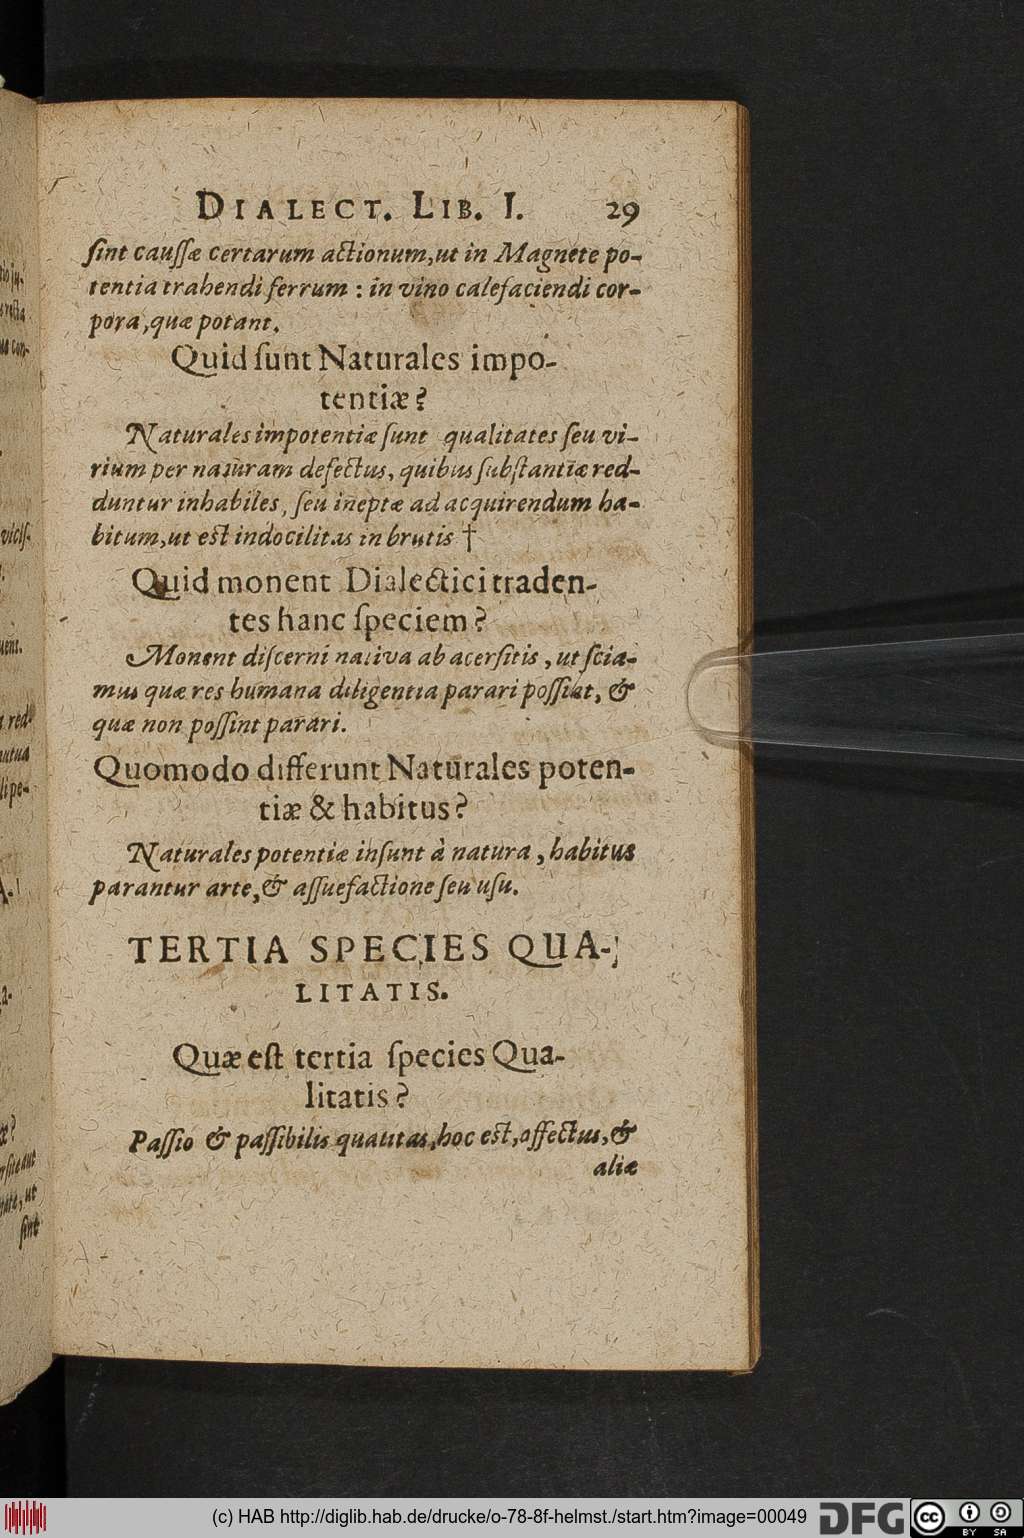 DIALECT. LIB. I. 29
ſint cauſſæ certarum actionum, ut in Magnete po-
tentia trahendi ferrum : in vino calefaciendi cor-
pora, quæ potant.
Quid ſunt Naturales impo-
tentiæ?
Naturales impotentiæ ſunt qualitates ſeu vi-
rium per naturam defectus, quibus ſubſtantiæ red-
duntur inhabiles, ſeu ineptæ ad acquirendum ha-
bitum, ut eſt indocilitas in brutis †
Quid monent Dialectici traden-
tes hanc ſpeciem?
Monent diſcerni nativa ab acerſitis, ut ſcia-
mus quæ res humana diligentia parari poſſint, &
quæ non poſſint parari.
Quomodo differunt Naturales poten-
tiæ & habitus?
Naturales potentiæ inſunt à natura, habitus
parantur arte, & aſſuefactione ſeu uſu.
TERTIA SPECIES QUA-
LITATIS.
Quæ eſt tertia ſpecies Qua-
litatis?
Paſſio & paſſibilis qualitas, hoc eſt, affectus, &
aliæ
(c) HAB http://diglib.hab.de/drucke/o-78-8f-helmst./start.htm?image=00049 DFG cc BY SA